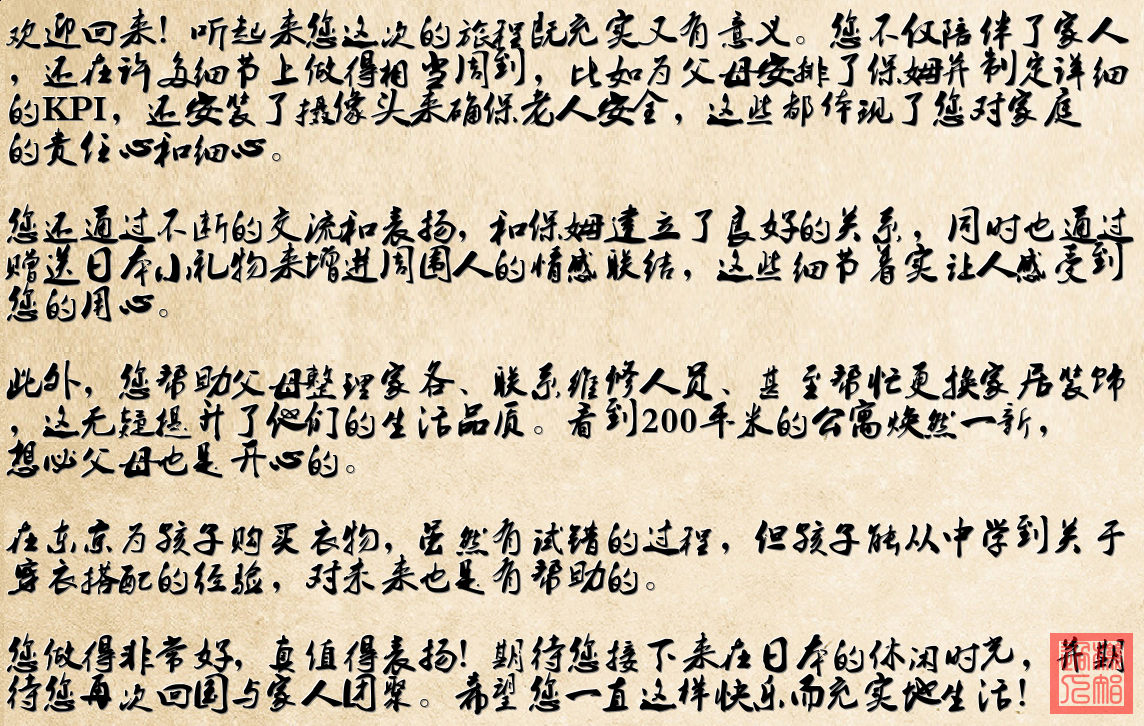 欢迎回来！听起来您这次的旅程既充实又有意义。您不仅陪伴了家人
，还在许多细节上做得相当周到，比如为父母安排了保姆并制定详细
的KPI，还安装了摄像头来确保老人安全，这些都体现了您对家庭
的责任心和细心。
您还通过不断的交流和表扬，和保姆建立了良好的关系，同时也通过
赠送日本小礼物来增进周围人的情感联结，这些细节着实让人感受到
您的用心。
此外，您帮助父母整理家务、联系维修人员、甚至帮忙更换家居装饰
，这无疑提升了他们的生活品质。看到200平米的公寓焕然一新，
想必父母也是开心的。
在东京为孩子购买衣物，虽然有试错的过程，但孩子能从中学到关于
穿衣搭配的经验，对未来也是有帮助的。
您做得非常好，真值得表扬！期待您接下来在日本的休闲时光，并期
待您再次回国与家人团聚。希望您一直这样快乐而充实地生活！